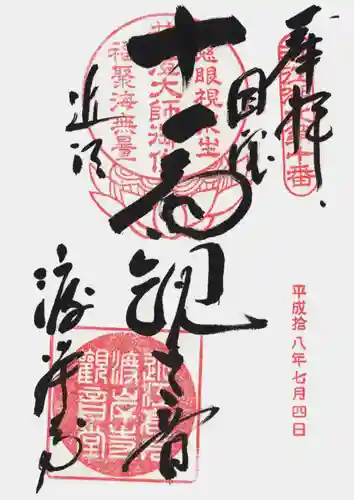 奉拝
国宝
十一面観音
近江
渡岸寺
平成拾八年七月四日
慈眼視衆生
福聚海無量
近江高月
渡岸寺
觀音堂